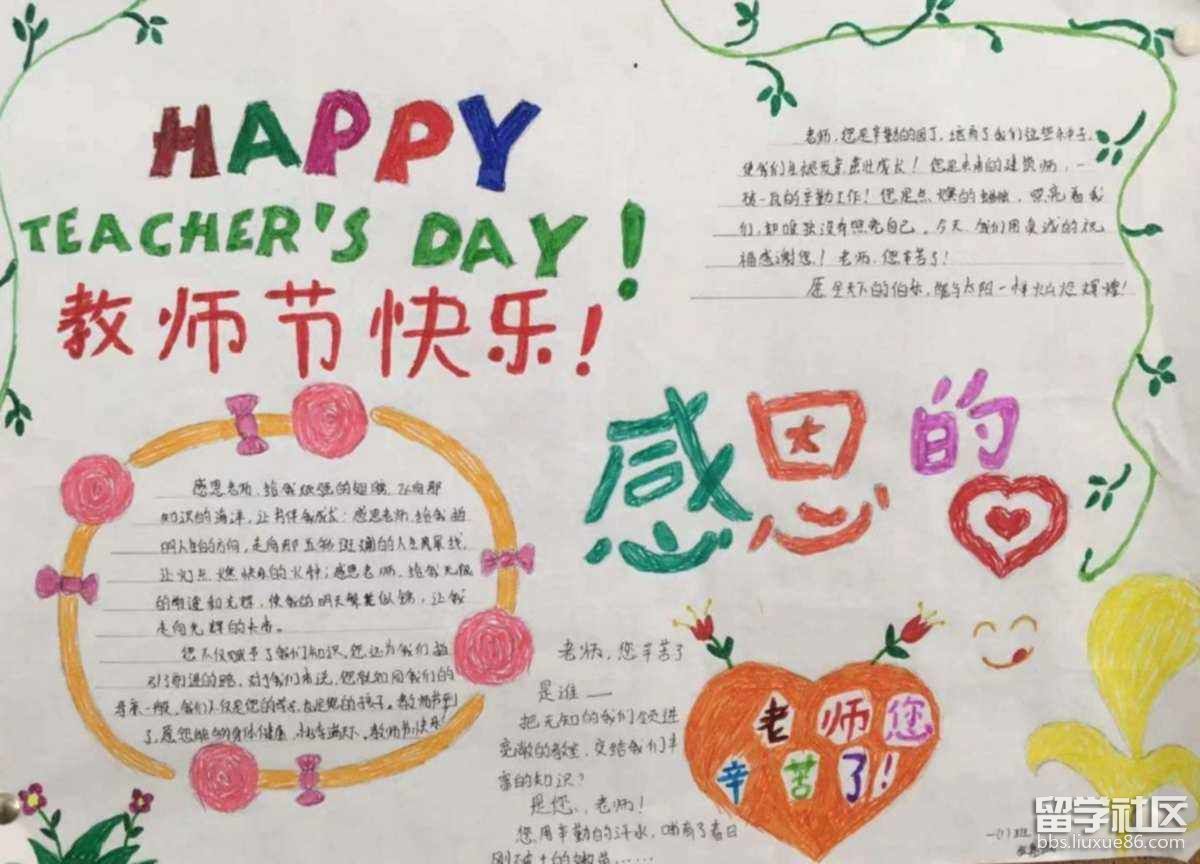 HAPPY
TEACHER'S DAY!
教师节快乐!
老师,您是辛勤的园丁,培育了我们这些种子,
使我们生根发芽茁壮成长!您是未来的建筑师,一
砖一瓦的辛勤工作!您是点燃的蜡烛,照亮着我
们,却唯独没有照亮自己。今天,我们用真诚的祝
福感谢您!老师,您辛苦了!
愿全天下的伯乐,能与太阳一样灿烂辉煌!
感恩的
感恩老师,给我 的翅膀,飞向那
知识的海洋,让书伴我成长;感恩老师,给我指
明人生的方向,走向那五彩斑斓的人生风景线,
让灯点燃快乐的火种;感恩老师,给我无限
的 和光辉,使我的明天繁花似锦,让我
走向光辉的未来。
您不仅赋予了我们知识,您还为我们指
引了前进的路,对于我们来说,您就如同我们的
母亲一般,我们不仅是您的学生,也是您的孩子。教师节到
了,愿您能够身体健康, 教师节快乐!
老师,您辛苦了
是谁——
把无知的我们领进
宽敞的教室,交给我们丰
富的知识?
是您,老师!
您用辛勤的汗水,哺育了春日
刚破土的嫩苗……
老师您
辛苦了!
一(1)班
留学社区
bbs.liuxue86.com